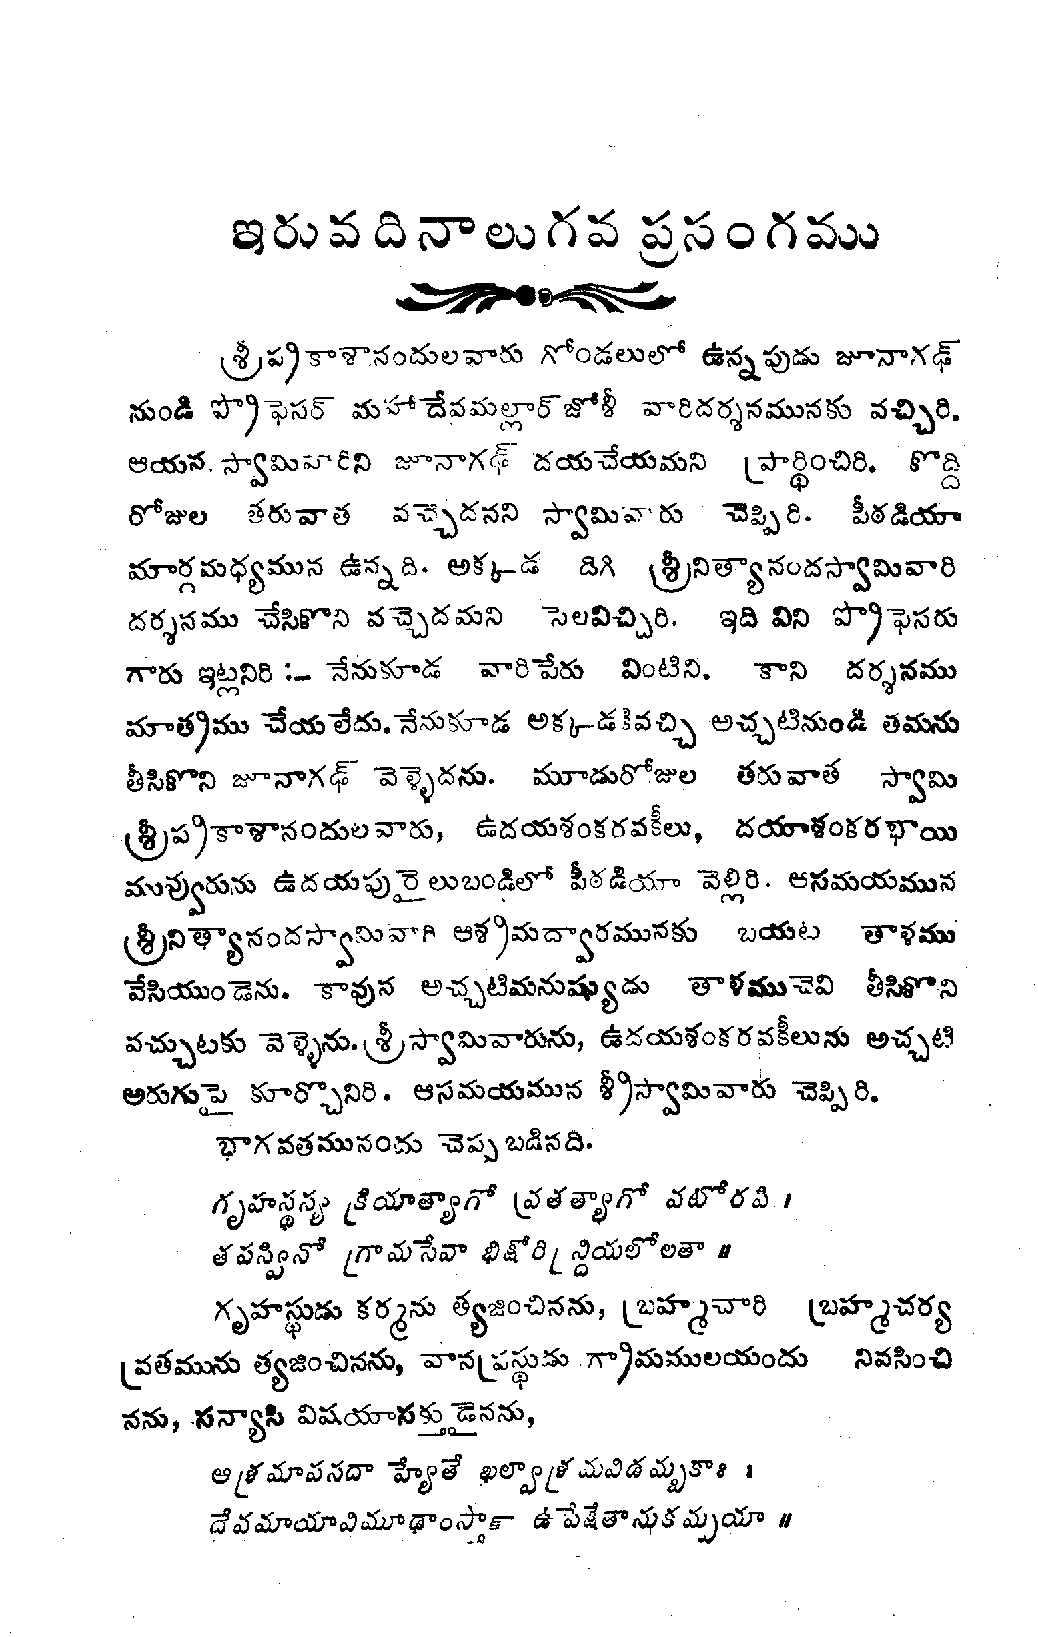 ఇరువదినాలుగవ ప్రసంగము
శ్రీప్రకాశానందులవారు గోండలులో ఉన్నపుడు జూనాగఢ్
నుండి ప్రొఫెసర్ మహాదేవమల్లార్ జోశీ వారిదర్శనమునకు వచ్చిరి.
ఆయన స్వామివారిని జూనాగఢ్ దయచేయమని ప్రార్థించిరి. కొద్ది
రోజుల తరువాత వచ్చెదనని స్వామివారు చెప్పిరి. పీఠడియా
మార్గమధ్యమున ఉన్నది. అక్కడ దిగి శ్రీనిత్యానందస్వామివారి
దర్శనము చేసికొని వచ్చెదమని సెలవిచ్చిరి. ఇది విని ప్రొఫెసరు
గారు ఇట్లనిరి :– నేనుకూడ వారిపేరు వింటిని. కాని దర్శనము
మాత్రము చేయలేదు. నేనుకూడ అక్కడకివచ్చి అచ్చటినుండి తమను
తీసికొని జూనాగఢ్ వెళ్ళెదను. మూడురోజుల తరువాత స్వామి
శ్రీప్రకాశానందులవారు, ఉదయశంకరవకీలు, దయాశంకరభాయి
మువ్వురును ఉదయపురైలుబండిలో పీఠడియా వెల్లిరి. ఆసమయమున
శ్రీనిత్యానందస్వామివారి ఆశ్రమద్వారమునకు బయట తాళము
వేసియుండెను. కావున అచ్చటిమనుష్యుడు తాళముచెవి తీసికొని
వచ్చుటకు వెళ్ళెను. శ్రీస్వామివారును, ఉదయశంకరవకీలును అచ్చటి
అరుగుపై కూర్చొనిరి. ఆసమయమున శ్రీస్వామివారు చెప్పిరి.
భాగవతమునందు చెప్పబడినది.
గృహస్థస్య క్రియాత్యాగో వ్రతత్యాగో వటోరపి ।
తపస్వినో గ్రామసేవా భిక్షోరిన్ద్రియలోలతా ॥
గృహస్థుడు కర్మను త్యజించినను, బ్రహ్మచారి బ్రహ్మచర్య
వ్రతమును త్యజించినను, వానప్రస్థుడు గ్రామములయందు నివసించి
నను, సన్యాసి విషయాసక్తుడైనను,
ఆశ్రమాపసదా హ్యేతే ఖల్వాశ్రమవిడమ్బకాః ।
దేవమాయావిమూఢాంస్తాన్ ఉపేక్షేతానుకమ్పయా ॥